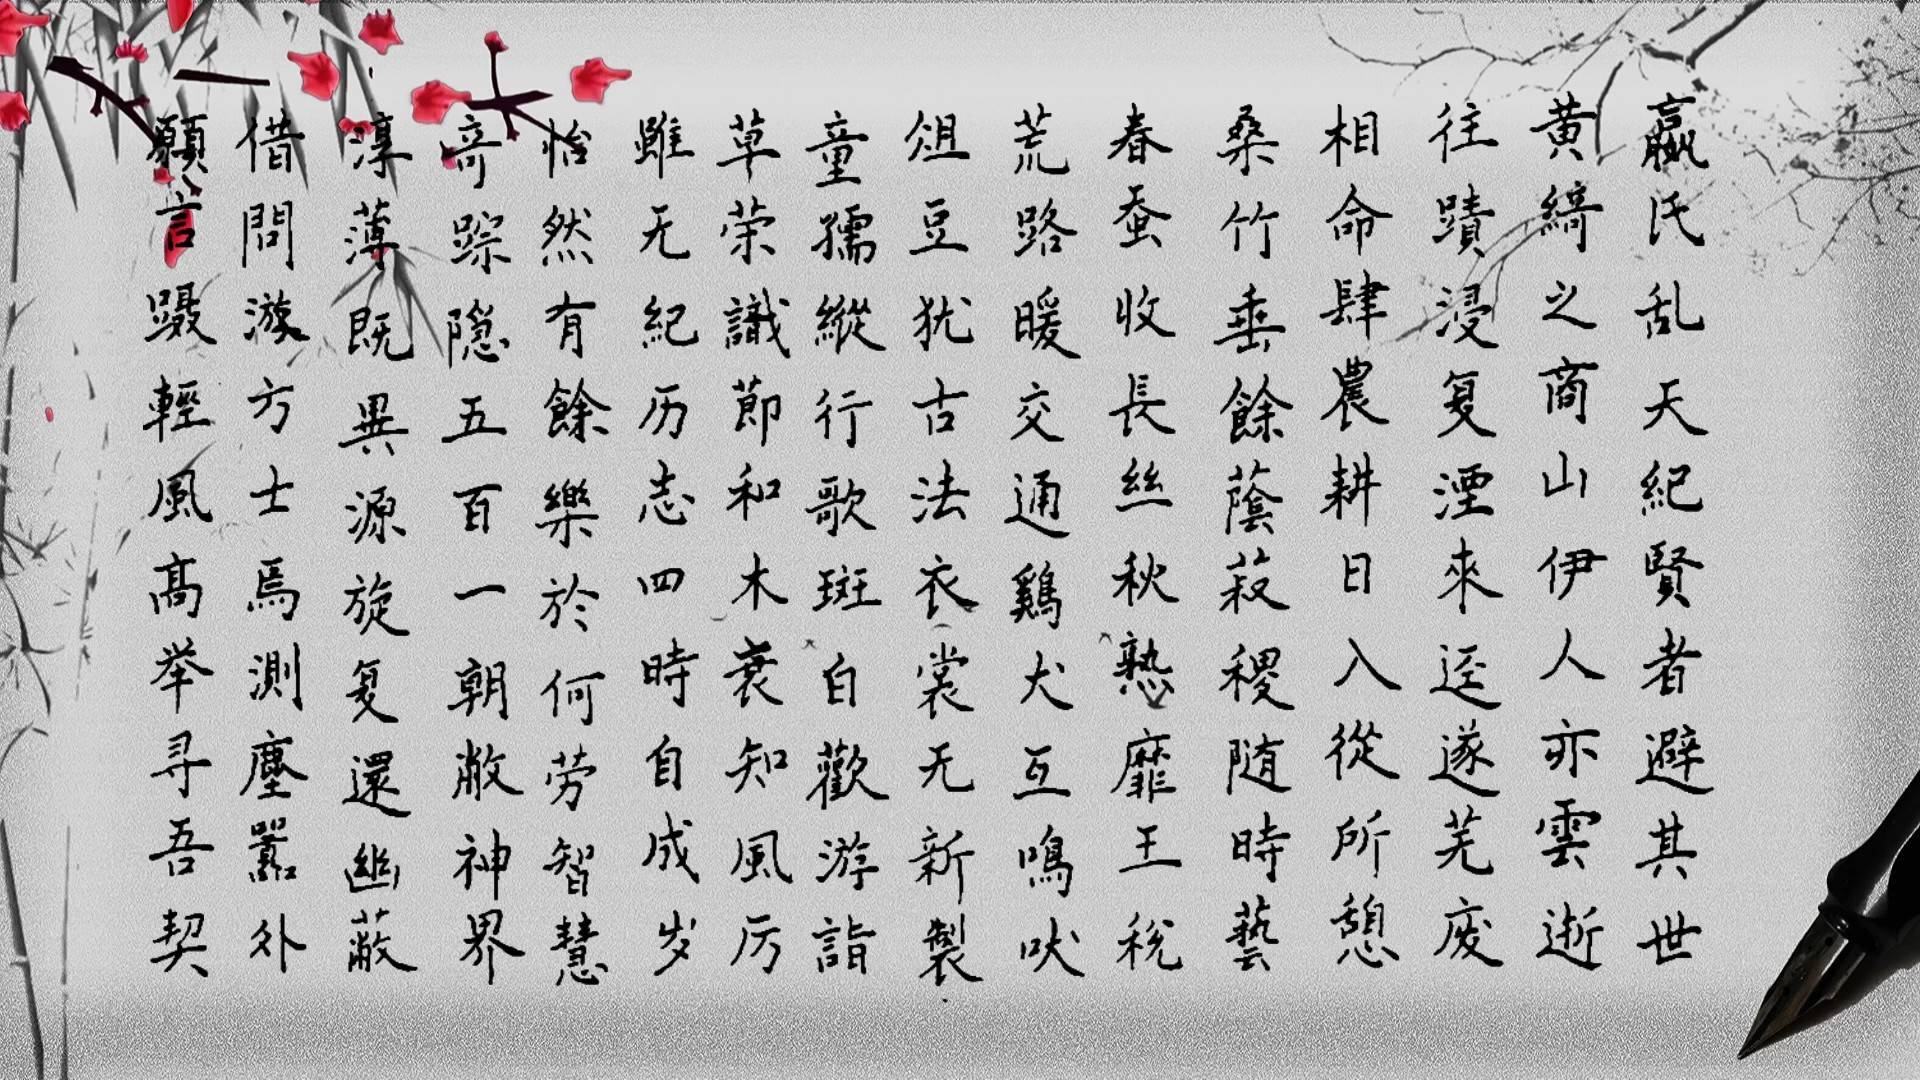 嬴氏乱天紀賢者避其世
黄綺之商山伊人亦雲逝
往蹟浸复湮來迳遂芜废
相命肆農耕日入從所憩
桑竹垂餘蔭菽稷随時藝
春蚕收長絲秋熟靡王税
荒路暧交通鷄犬互鳴吠
俎豆犹古法衣裳无新製
童孺縱行歌斑白歡游詣
草荣識節和木衰知風厉
雖无紀历志四時自成岁
怡然有餘樂於何劳智慧
奇踪隐五百一朝敞神界
淳薄既異源旋复還幽蔽
借問游方士焉測塵嚣外
願言蹑輕風高举寻吾契